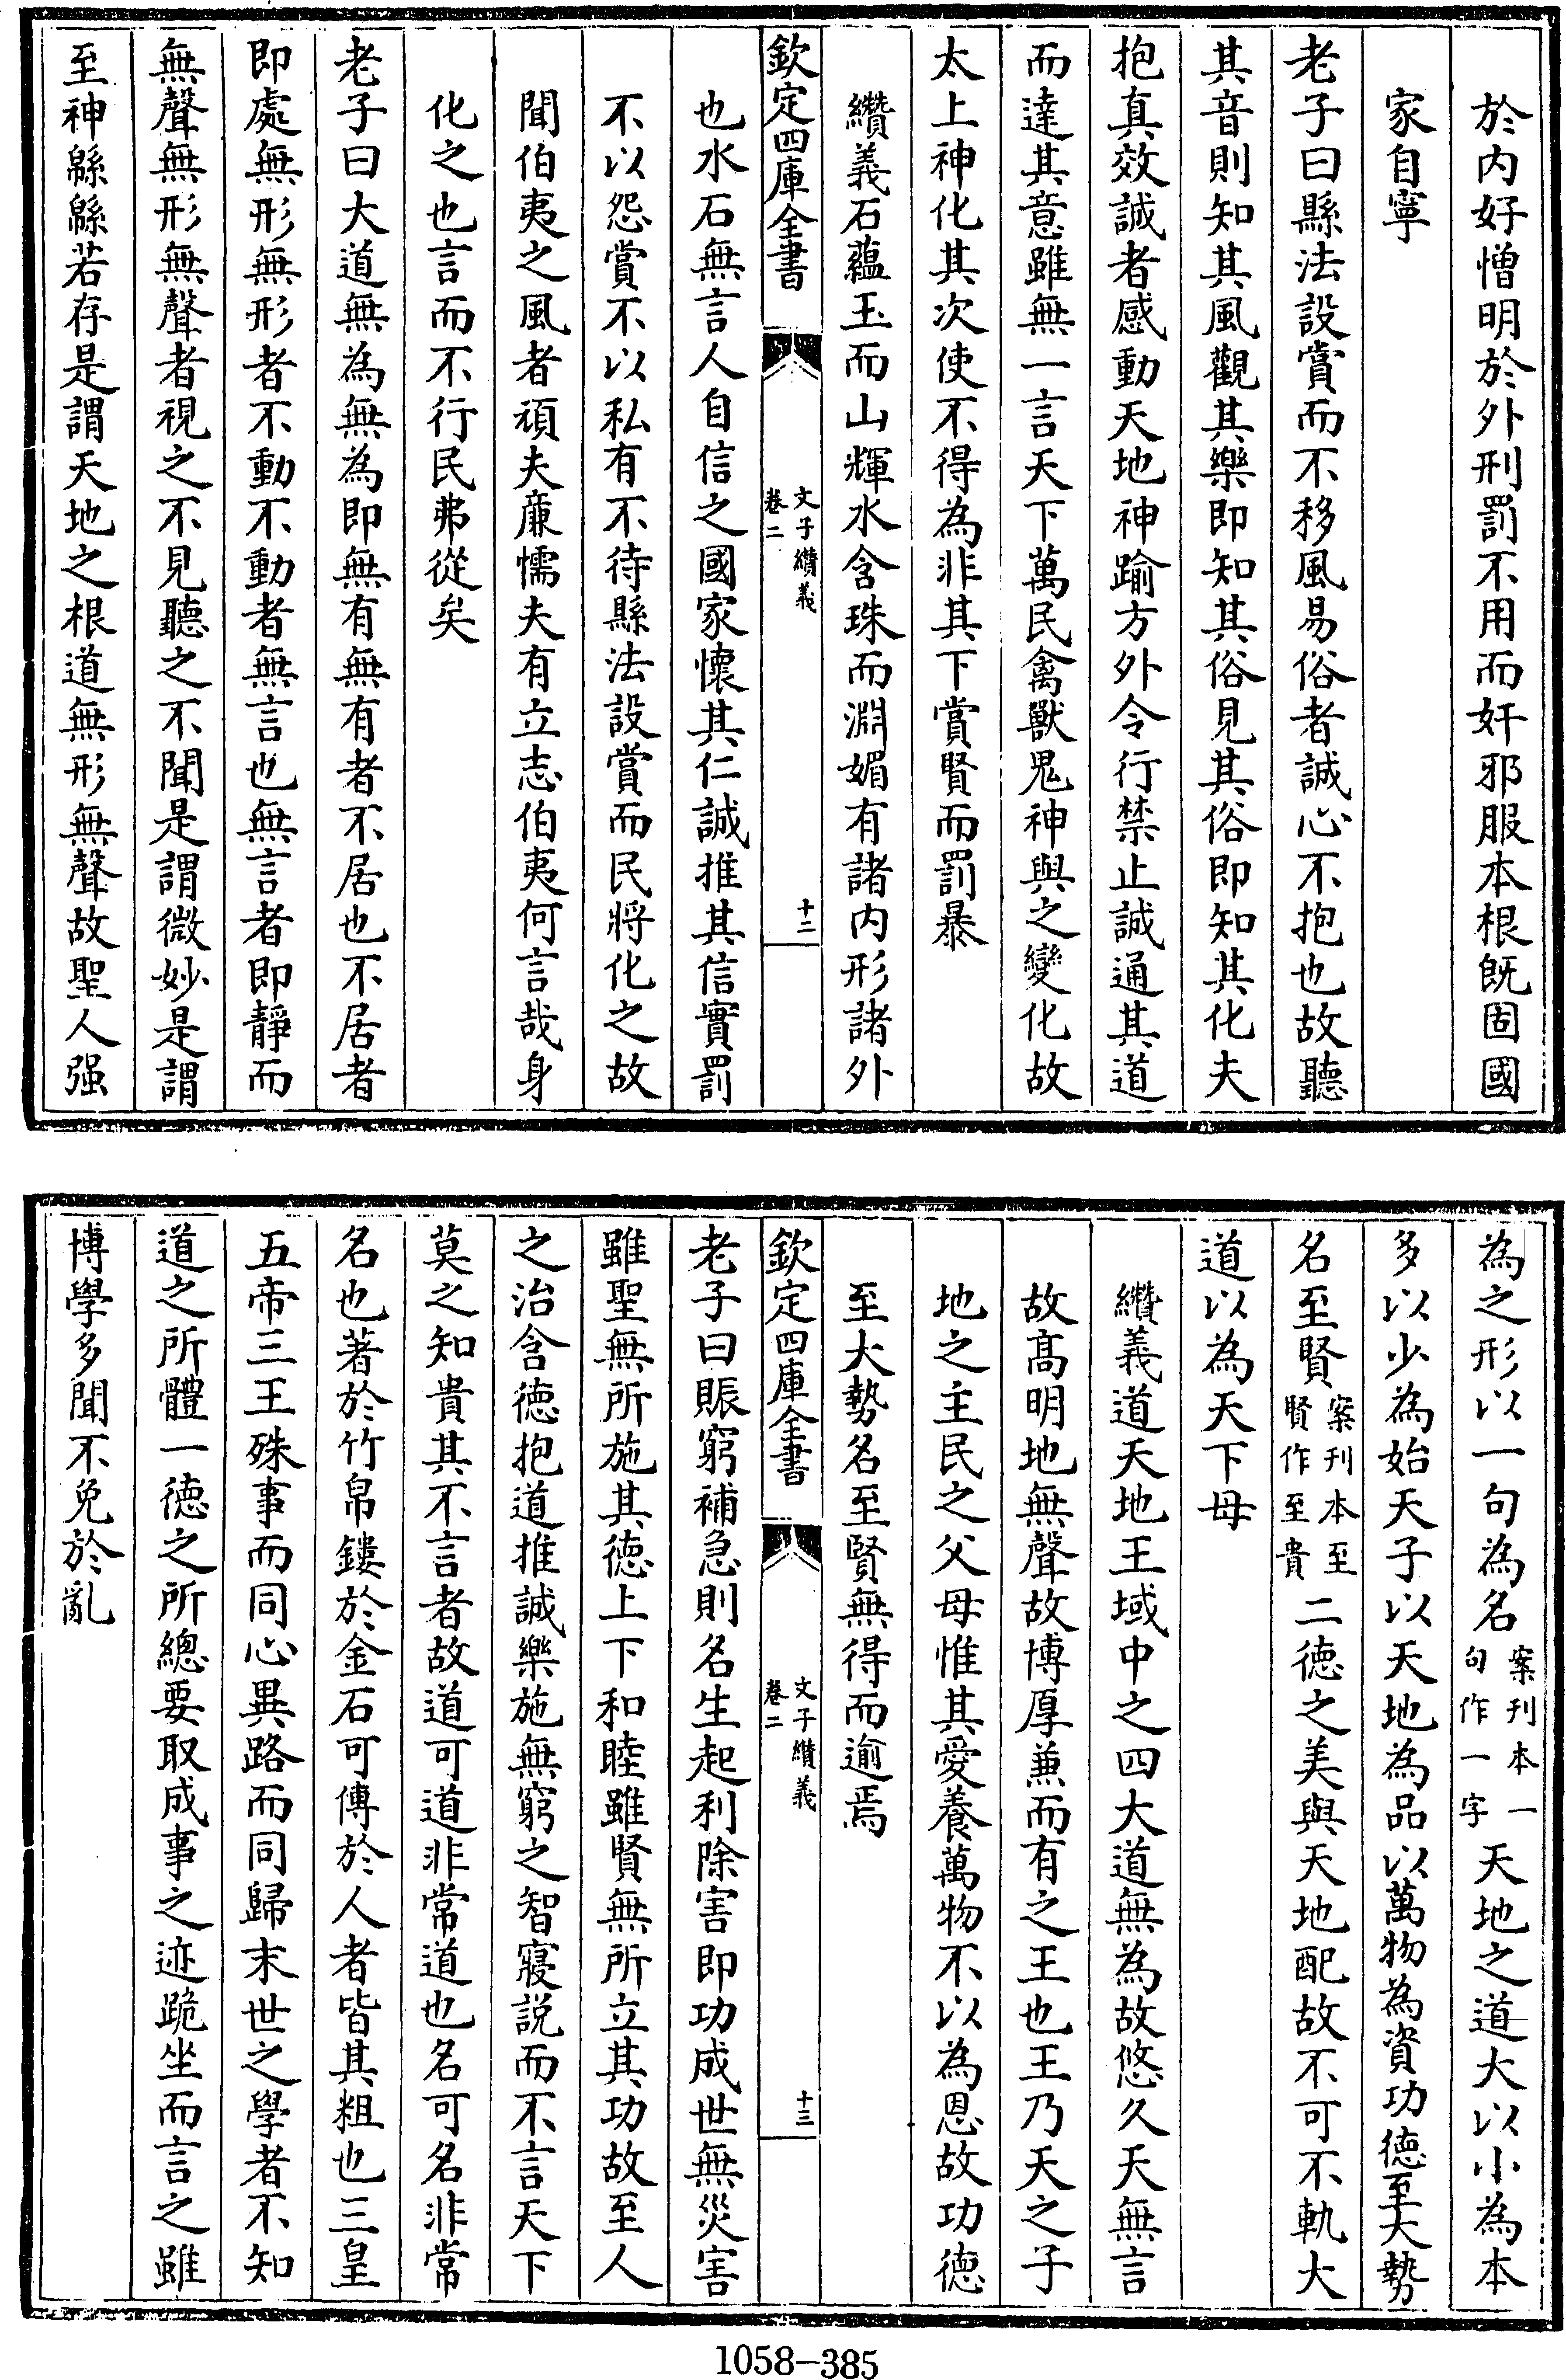 於内好憎明於外刑罰不用而奸邪服本根旣固國
家自寧
老子曰縣法設賞而不移風易俗者誠心不抱也故聽
其音則知其風觀其樂即知其俗見其俗即知其化夫
抱真效誠者感動天地神踰方外令行禁止誠通其道
而達其意雖無一言天下萬民禽獸鬼神與之變化故
太上神化其次使不得為非其下賞賢而罰暴
纘義石藴玉而山輝水含珠而淵媚有諸内形諸外
欽定四庫全書
文子纘義
卷二
十二
也水石無言人自信之國家懷其仁誠推其信實罰
不以怨賞不以私有不待縣法設賞而民將化之故
聞伯夷之風者頑夫亷懦夫有立志伯夷何言哉身
化之也言而不行民弗從矣
老子曰大道無為無為即無有無有者不居也不居者
即處無形無形者不動不動者無言也無言者即靜而
無聲無形無聲者視之不見聽之不聞是謂微妙是謂
至神緜緜若存是謂天地之根道無形無聲故聖人强
為之形以一句為名案刊本一句作一字天地之道大以小為本
多以少為始天子以天地為品以萬物為資功德至大勢
名至賢案刊本至賢作至貴二徳之美與天地配故不可不軌大
道以為天下母
纘義道天地王域中之四大道無為故悠久天無言
故髙明地無聲故博厚兼而有之王也王乃天之子
地之主民之父母惟其愛養萬物不以為恩故功德
至大勢名至賢無得而逾焉
欽定四庫全書
文子纘義
卷二
十三
老子曰賑窮補急則名生起利除害即功成世無災害
雖聖無所施其德上下和睦雖賢無所立其功故至人
之治含德抱道推誠樂施無窮之智寢説而不言天下
莫之知貴其不言者故道可道非常道也名可名非常
名也著於竹帛鏤於金石可傳於人者皆其粗也三皇
五帝三王殊事而同心異路而同歸末世之學者不知
道之所體一德之所總要取成事之迹跪坐而言之雖
博學多聞不免於亂
1058-385